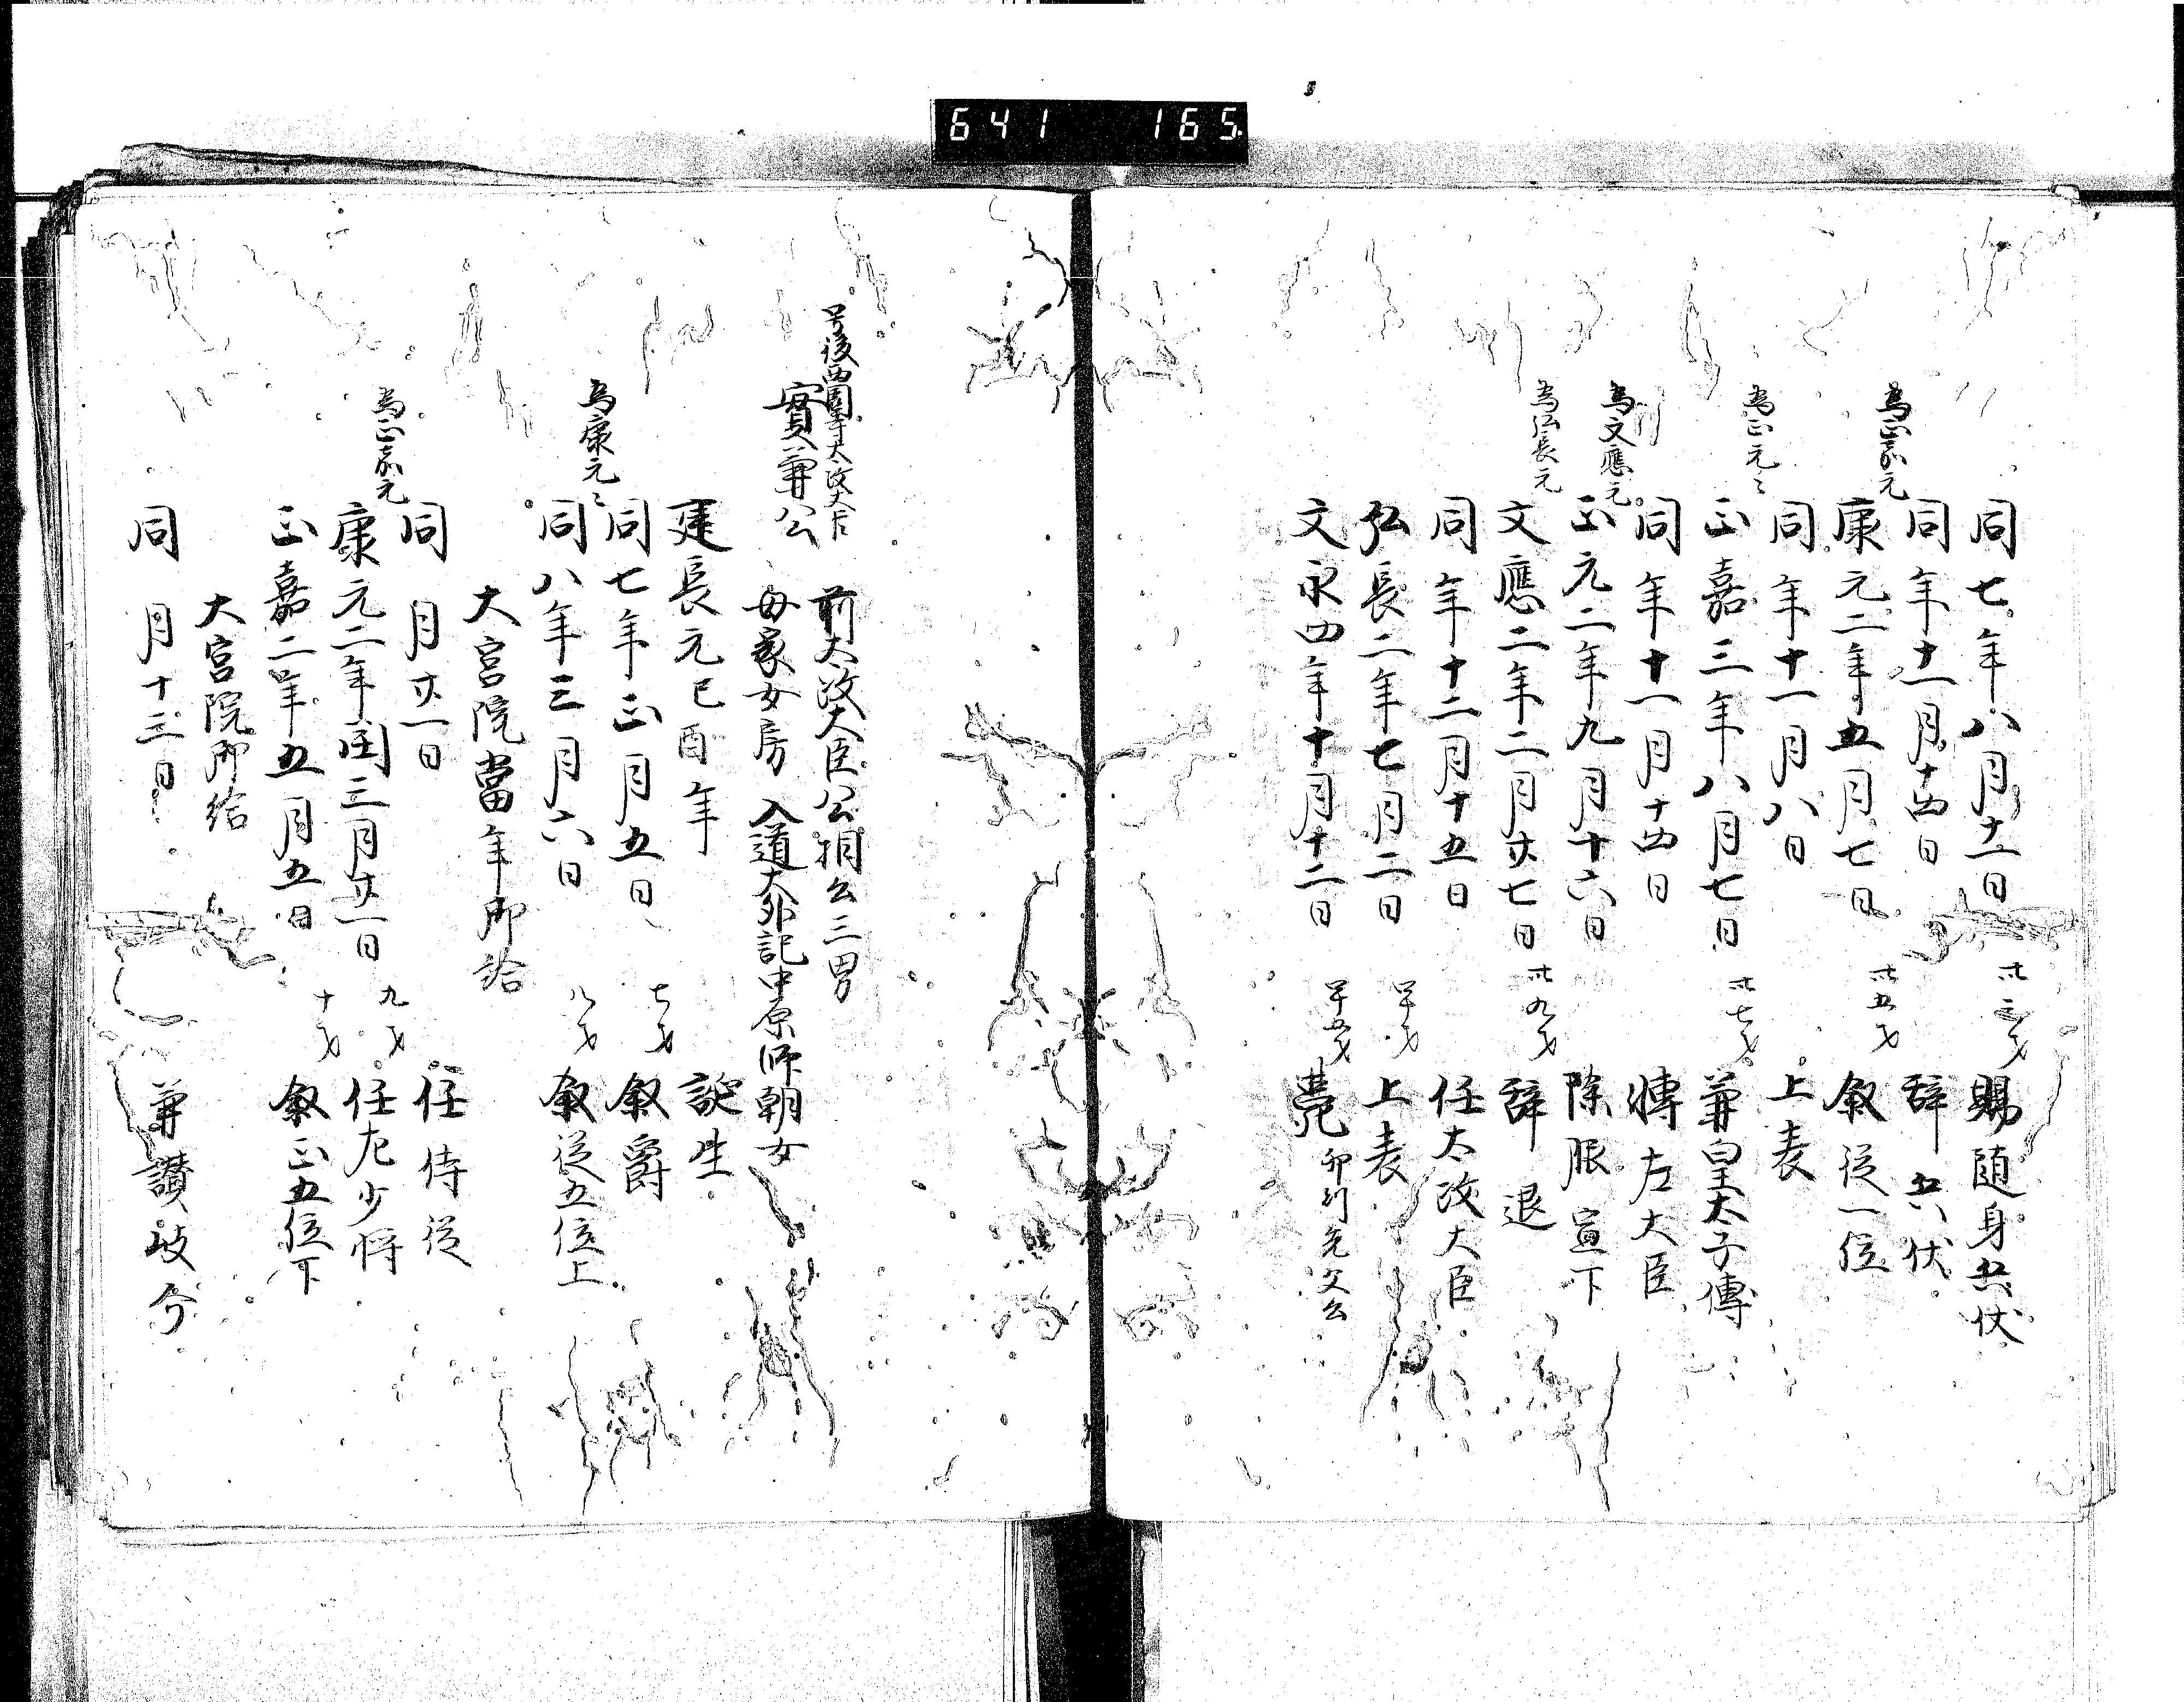 641 165
同七年八月十一日 卅三才 賜随身兵仗
為正嘉元
同年十一月十四日 辞兵仗
康元二年五月七日 卅五才 叙従一位
為正元々
同年十一月八日 上表
正嘉三年八月七日 卅七才 兼皇太子傅
同年十一月十四日 轉左大臣
為文應元
正元二年九月十六日 除服宣下
為弘長元
文應二年二月廿七日 卅九才 辞退
同年十二月十五日 任太政大臣
弘長二年七月二日 四十才 上表
文永四年十月十二日 四十五才 薨
号後西園寺太政大臣
實兼公 前太政大臣公相公三男
母家女房 入道大外記中原師朝女
建長元己酉年 誕生
同七年正月五日 七才 叙爵
為康元々
同八年三月六日 八才 叙従五位上
大宮院當年御給
同月廿一日 任侍従
為正嘉元
康元二年閏三月廿一日 九才 任左少将
正嘉二年五月五日 十才 叙正五位下
大宮院御給
同月十三日 兼讃岐介